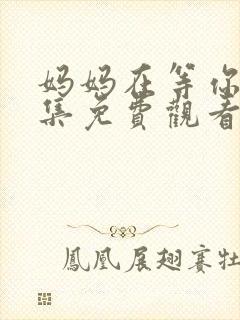 妈妈在等你
集免費觀看
鳳凰展翅赛牡